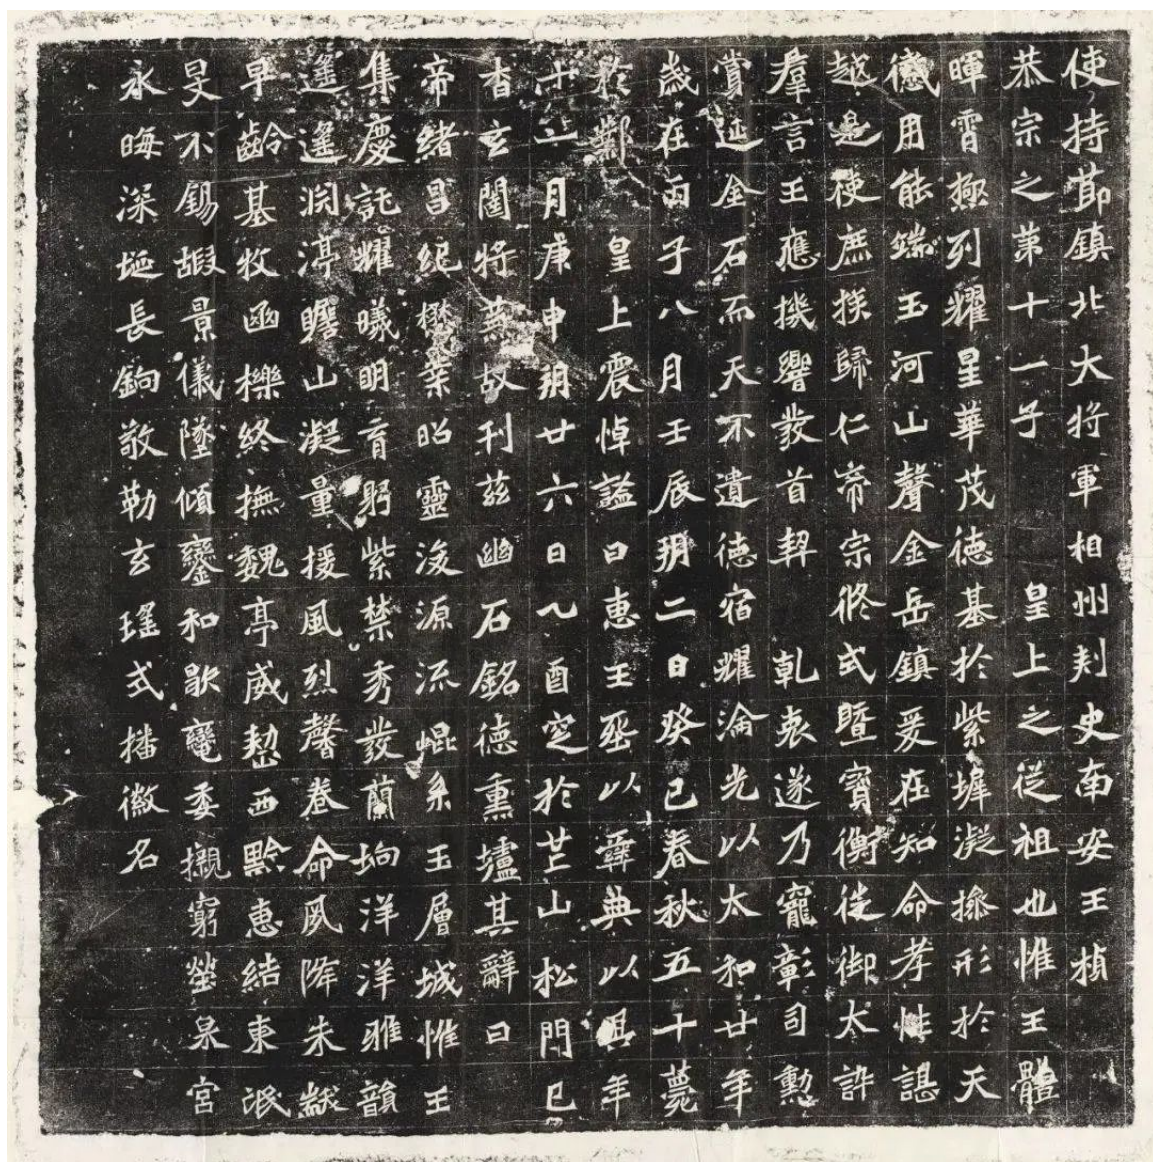 使持節鎮北大將軍相州刺史南安王楨
恭宗之第十一子 皇上之從祖也惟王體
暉霄極列耀星華茂德基於紫墀凝操形於天
感用能端玉河山聲金岳鎮爰在知命孝性諶
越是使庶族歸仁帝宗攸式暨寶衡徙御太訴
羣言王應機響發首契 乾衷遂乃寵彰司勳
賞延金石而天不遺德宿耀淪光以太和廿年
歲在丙子八月壬辰朔二日癸巳春秋五十薨
於鄴 皇上震悼謚曰惠王葬以彝典以其年
十一月庚申朔廿六日乙酉窆於芒山松門已
杳玄闥將蕪故刊茲幽石銘德熏壚其辭曰
帝緒昌紀懋業昭靈浚源流崐系玉層城惟王
集慶託耀曦明育躬紫禁秀發蘭坰洋洋雅韻
遙遙淵渟瞻山凝量援風烈馨卷命夙降朱黻
早齡基牧函櫟終撫魏亭威懾西黔惠結東氓
旻不錫嘏景儀墜傾鑾和歇鞏委櫬窮塋泉宮
永晦深埏長鉤敬勒玄瑤式播徽名